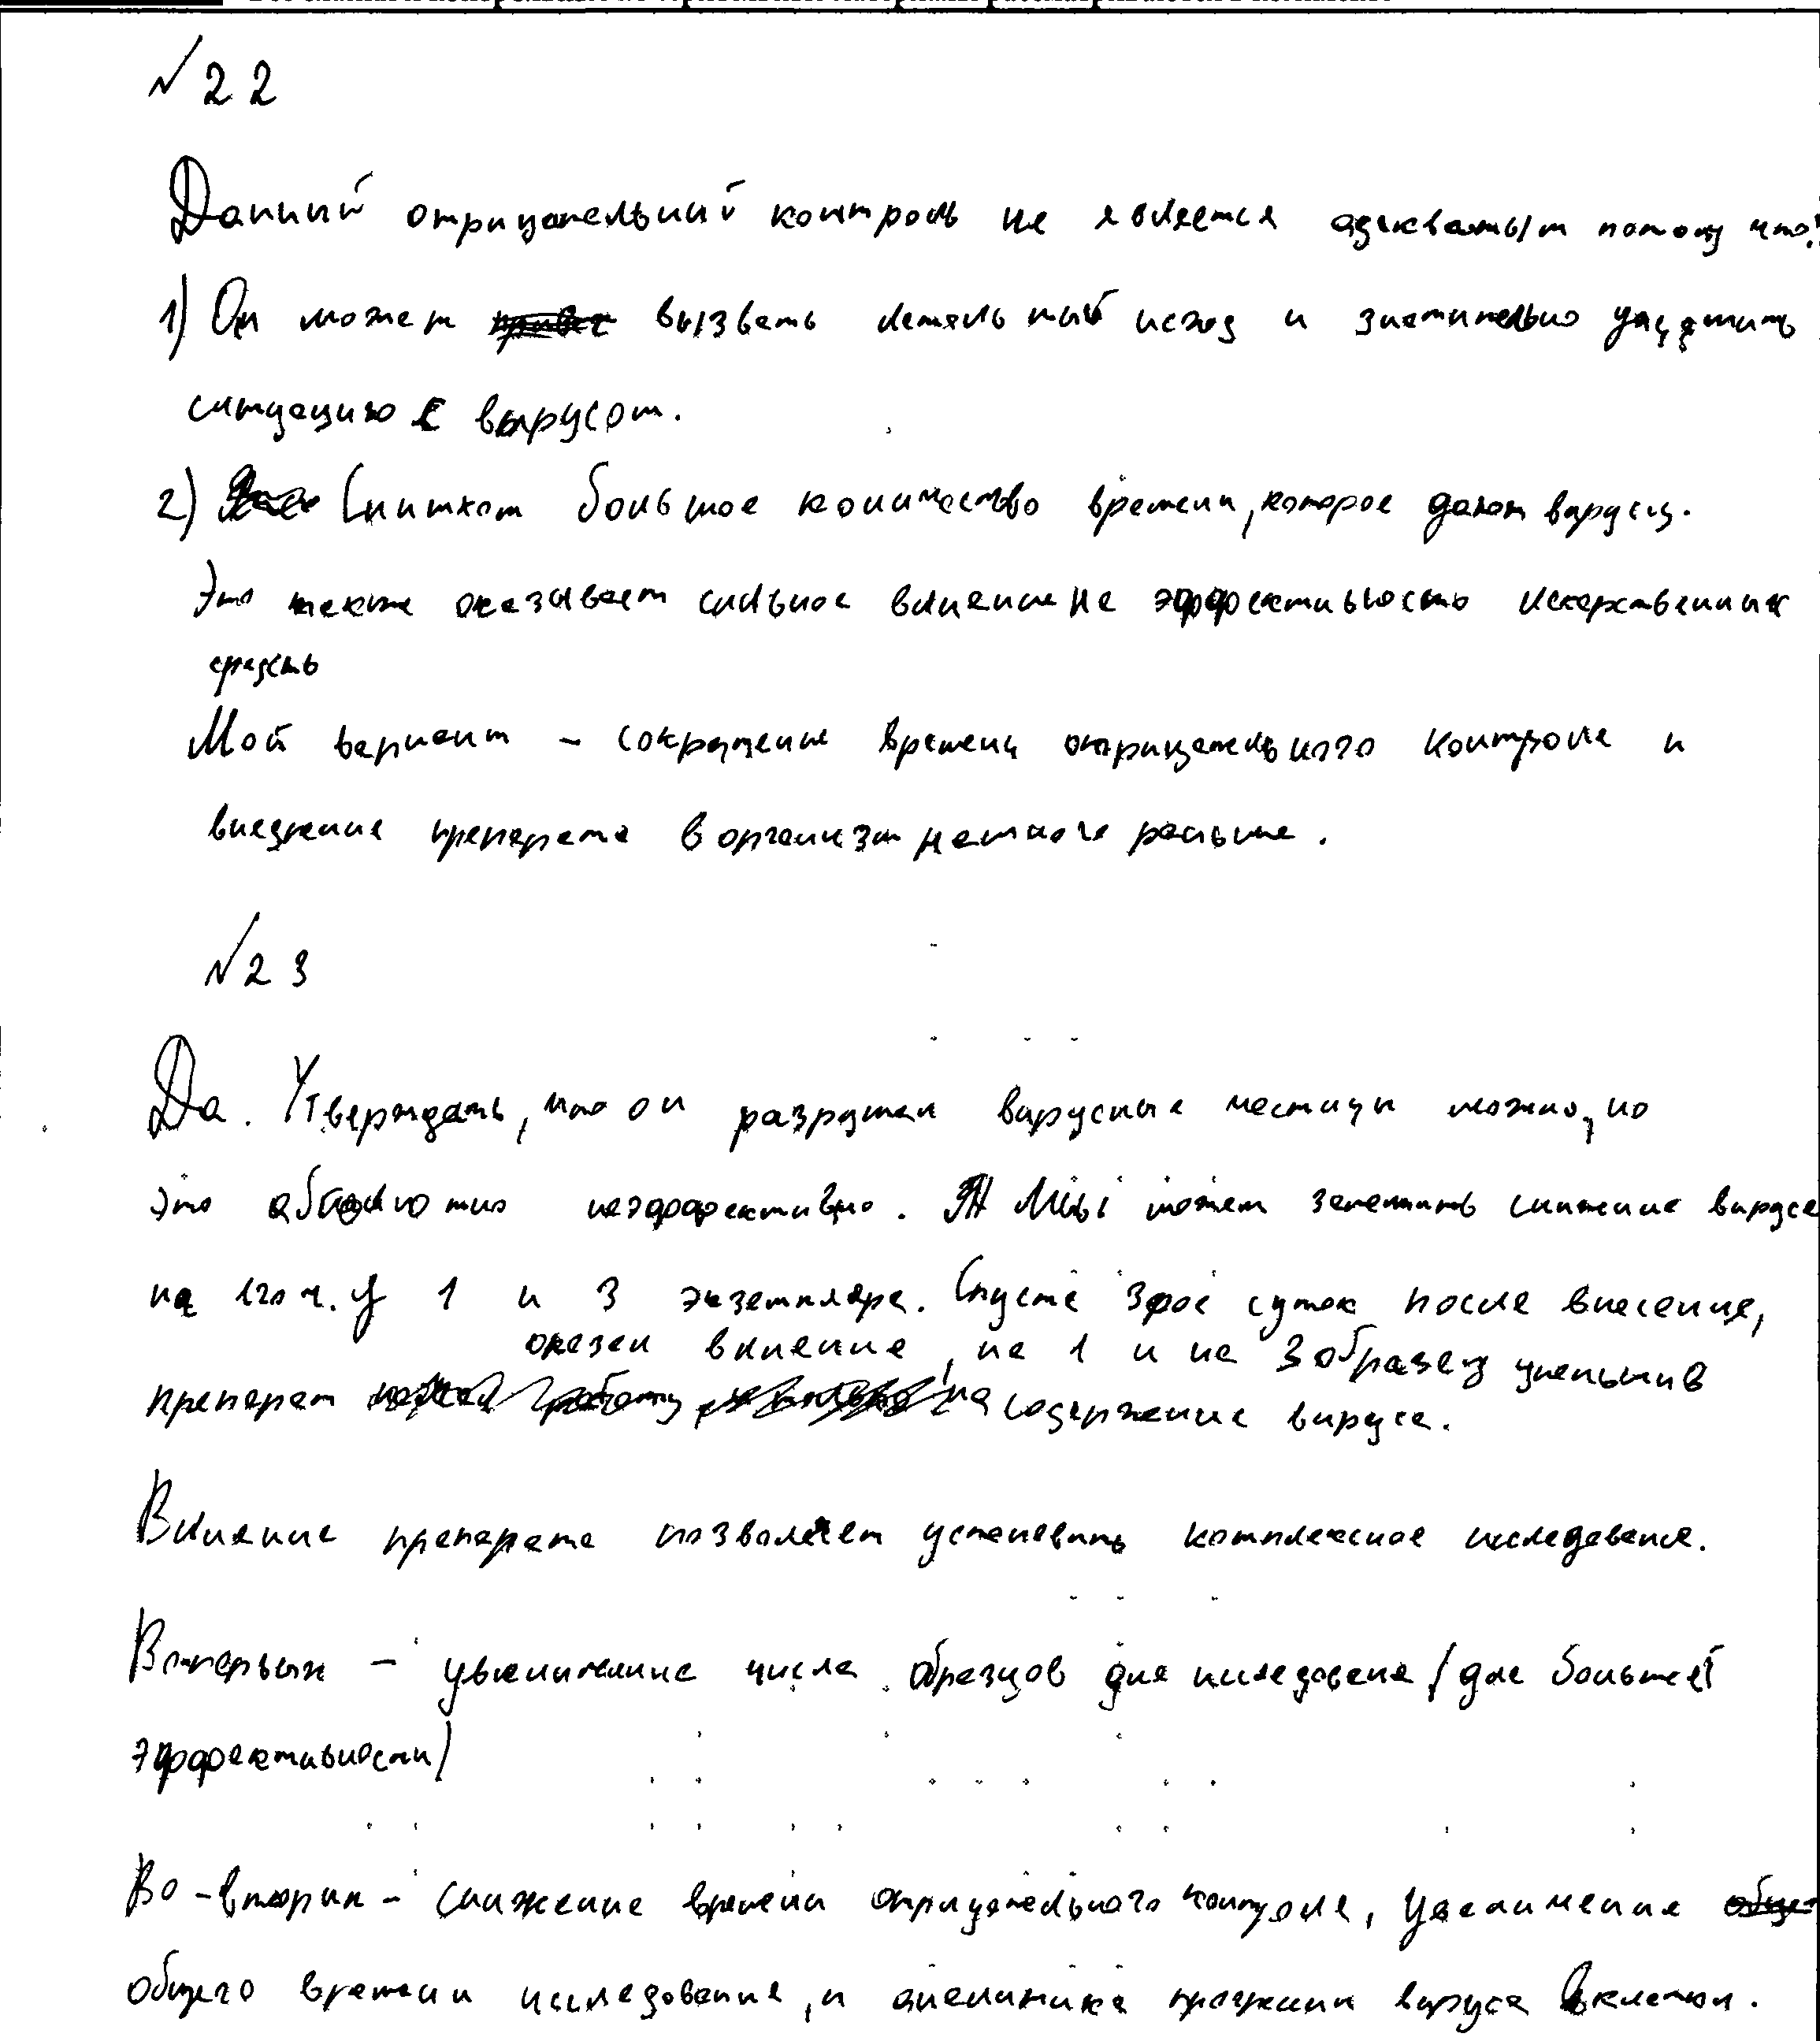 № 22
Данный отрицательный контроль не является адекватным потому что:
1) Он может вызвать летальный исход и значительно ухудшить
ситуацию с вирусом.
2) Слишком большое количество времени, которое дают вирусу.
Это также оказывает сильное влияние на эффективность лекарственных
средств
Мой вариант – сокращение времени отрицательного контроля и
внедрение препарата в организм немного раньше.
№ 23
Да. Утверждать, что он разрушал вирусные частицы можно, но
это абсолютно неэффективно. Мы можем заметить снижение вируса
на 120 ч. у 1 и 3 экземпляра. Спустя 3ое суток после внесения,
оказал влияние, на 1 и на 3 образец уменьшив
препарат содержание вируса.
Влияние препарата позволяет установить комплексное исследование.
Во-первых – увеличение числа образцов для исследования /для большей
эффективности/
Во-вторых – снижение времени отрицательного контроля, увеличение
общего времени исследования, и вируса